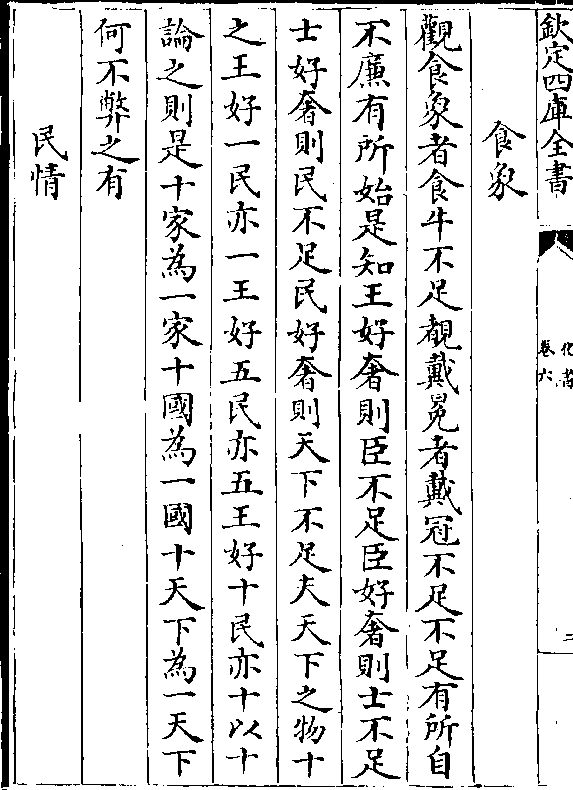 欽定四庫全書
化書
卷六
二
食象
觀食象者食牛不足覩戴冕者戴冠不足不足有所自
不廉有所始是知王好奢則臣不足臣好奢則士不足
士好奢則民不足民好奢則天下不足夫天下之物十
之王好一民亦一王好五民亦五王好十民亦十以十
論之則是十家為一家十國為一國十天下為一天下
何不弊之有
民情